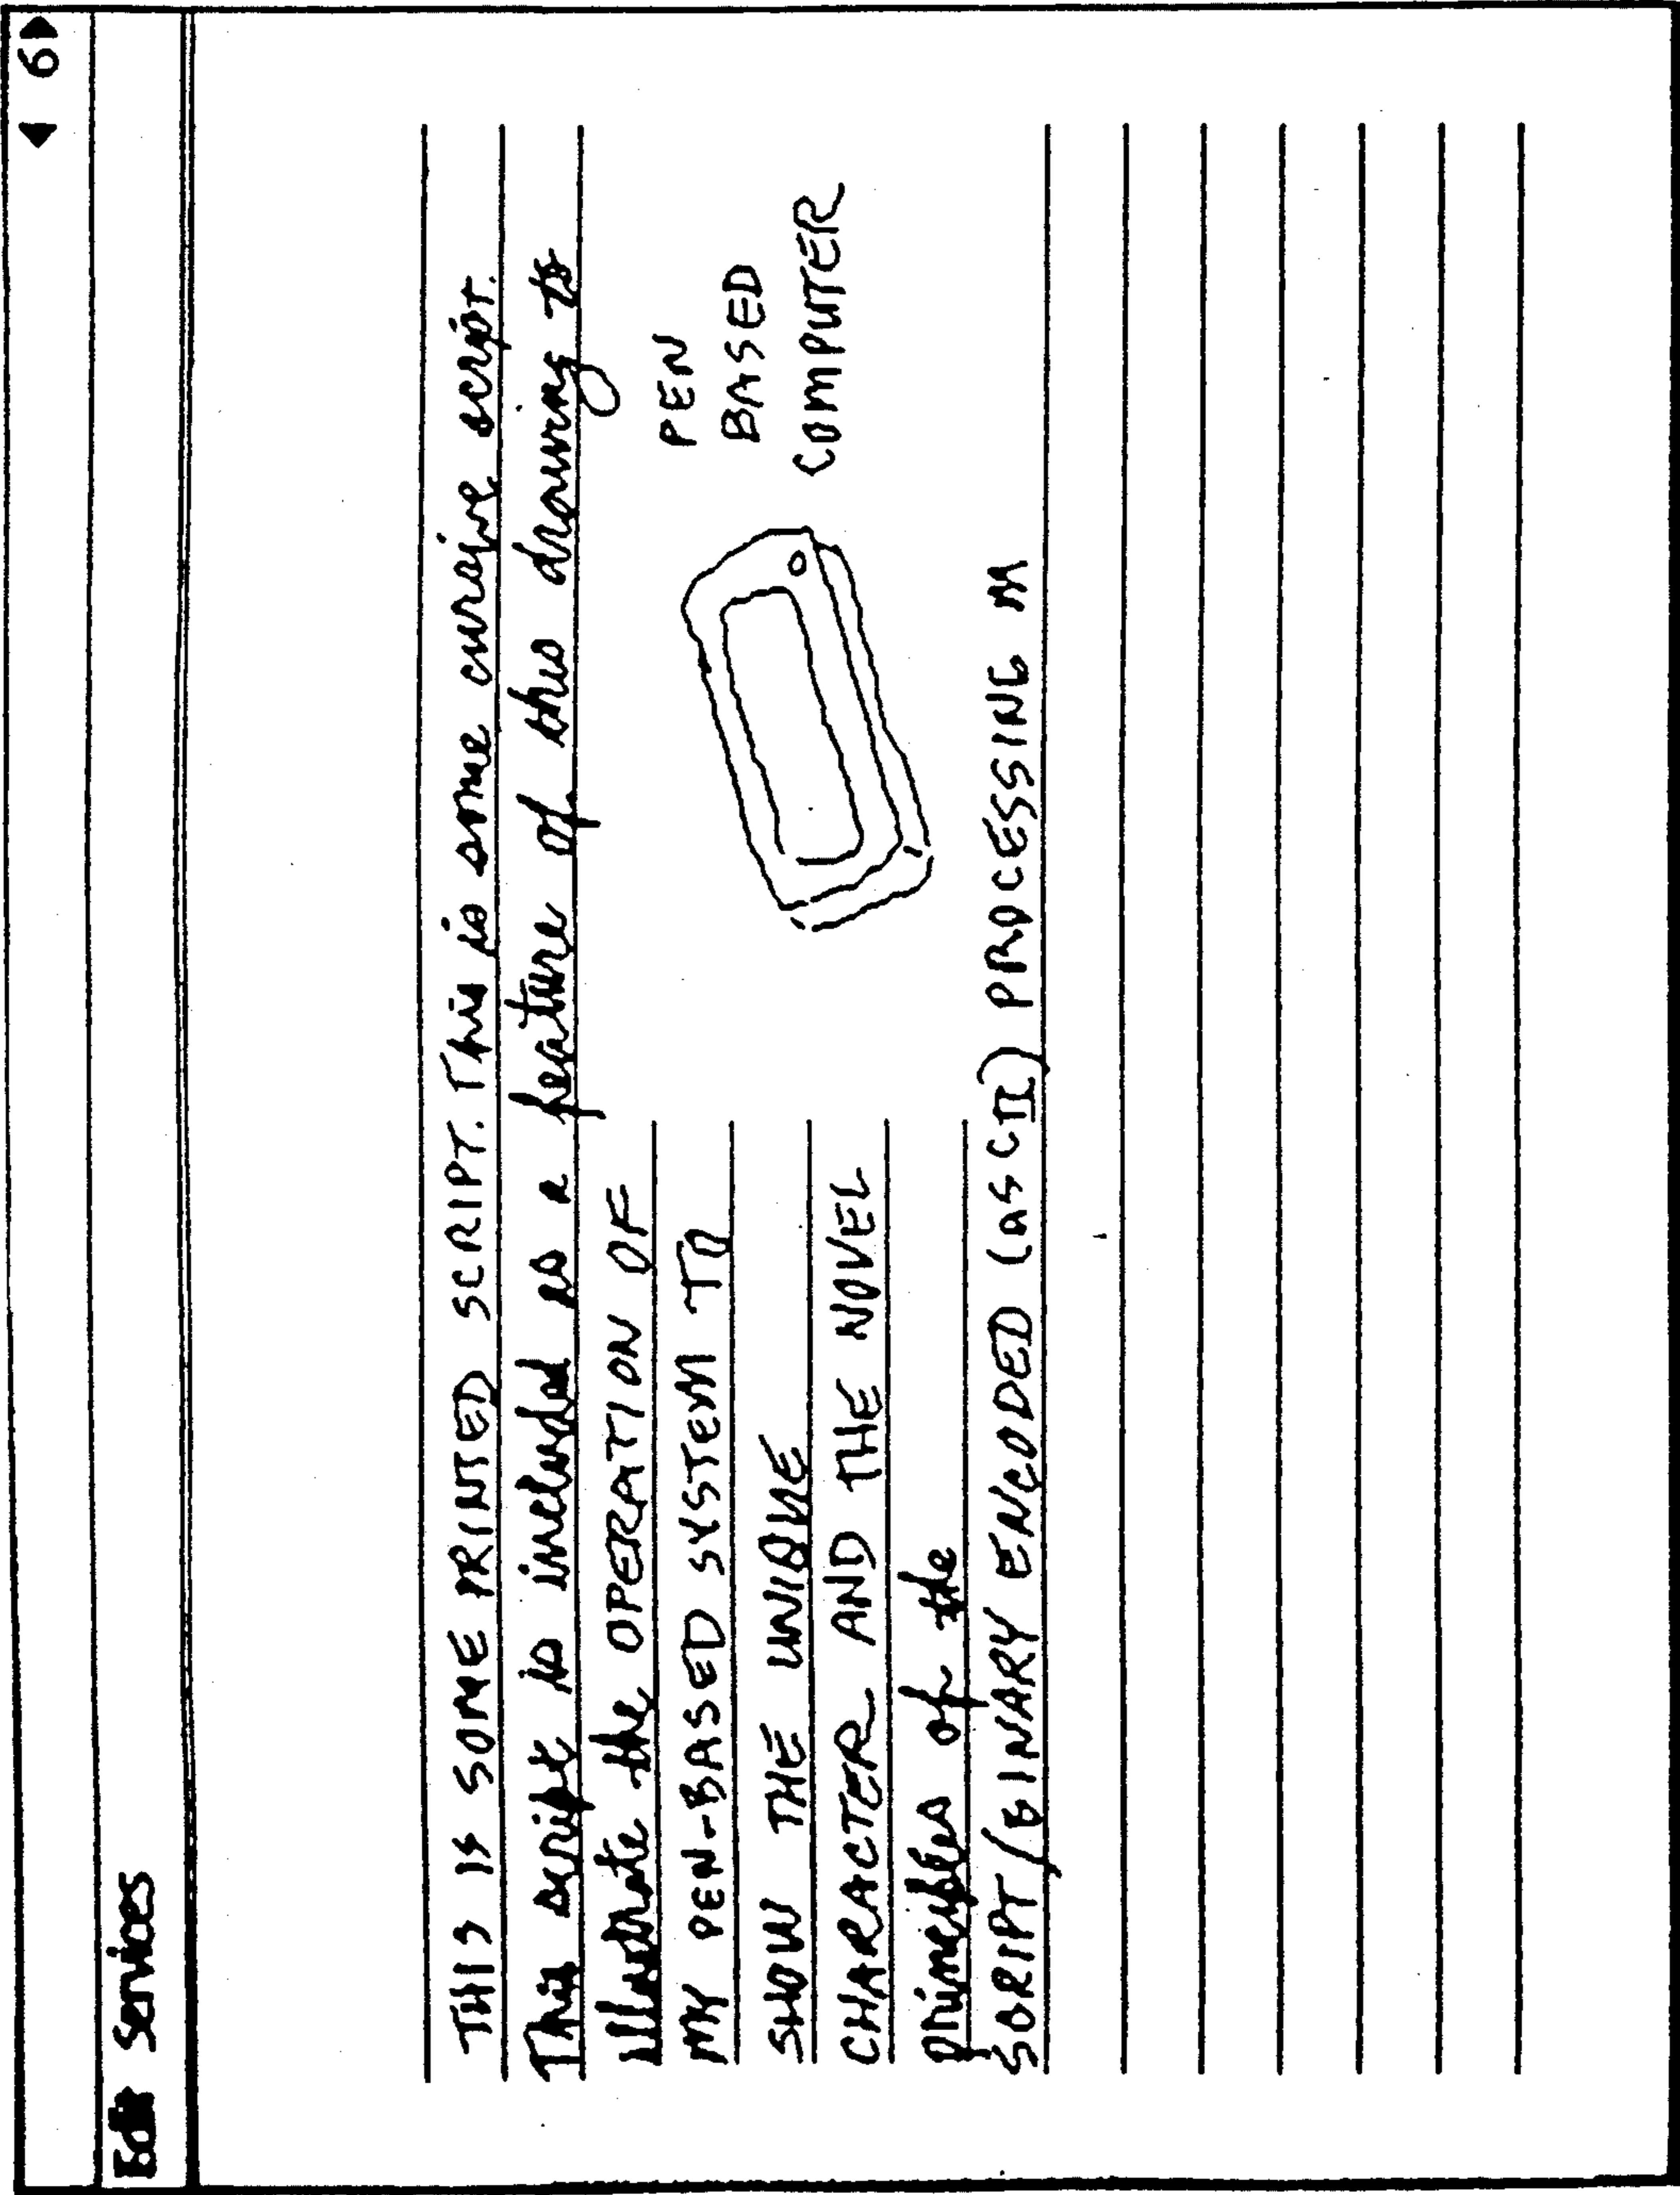 ◀ 6 ▶
Edit Services
THIS IS SOME PRINTED SCRIPT. This is some cursive script.
This script is included as a feature of this drawing to
illustrate the OPERATION OF
MY PEN-BASED SYSTEM TO
SHOW THE UNIQUE
CHARACTER AND THE NOVEL
principles of the
SCRIPT/BINARY ENCODED (ASCII) PROCESSING M
PEN
BASED
COMPUTER